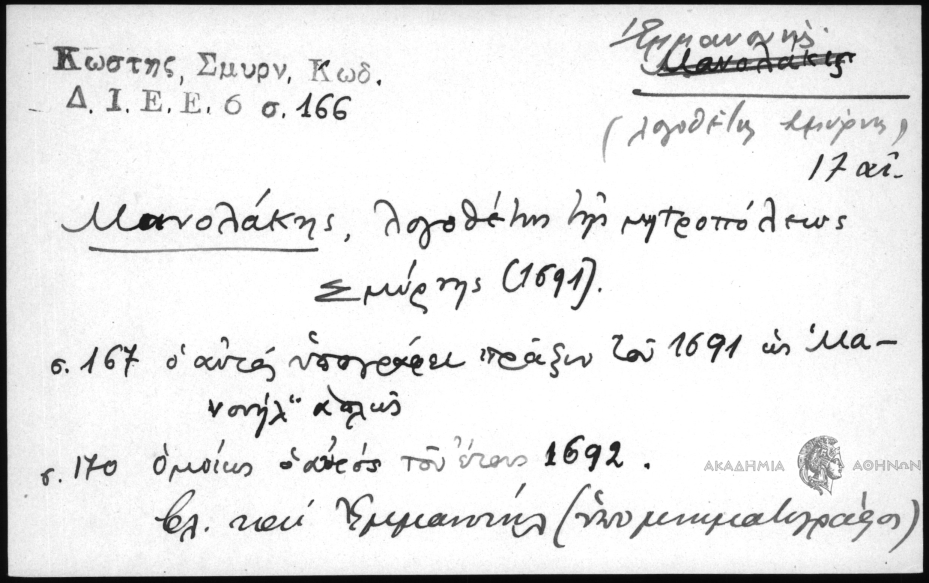 Κωστης, Σμυρν, Κωδ.
Δ. Ι. Ε. Ε. 6 σ. 166
Ἐμμανουήλ
Μανολάκης
(λογοθέτης Σμύρνης)
17 αἰ.
Μανολάκης, λογοθέτης τῆς μητροπόλεως
Σμύρνης (1691).
σ. 167 ὁ αὐτός ὑπογράφει πρᾶξιν τοῦ 1691 ὡς "Μα-
νουήλ" ἁπλῶς
σ. 170 ὁμοίως ὁ αὐτός τοῦ ἔτους 1692.
βλ. καί Ἐμμανουήλ (ὑπομνηματογράφος)
ΑΚΑΔΗΜΙΑ ΑΘΗΝΩΝ